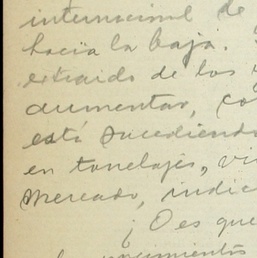 internacional de
hacia la baja.
extraido de los
aumentar, co
está sucediendo
en tonelajes, vi
mercado, indic
¿O es que